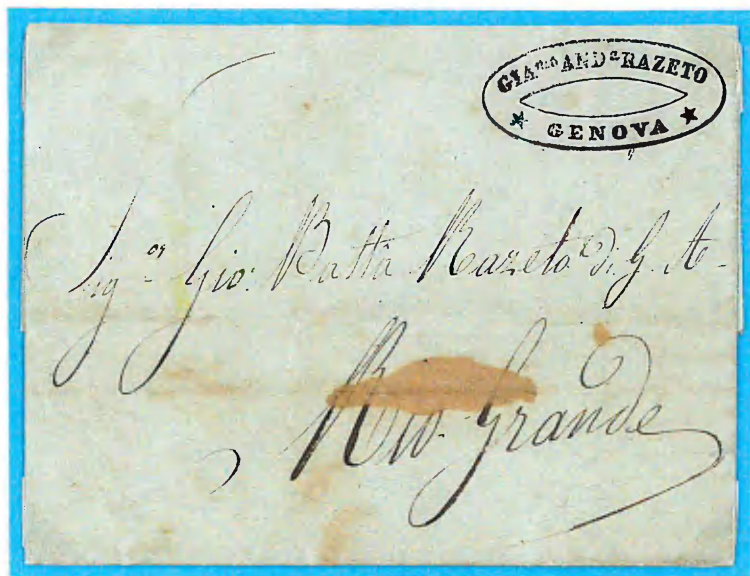 GIA.mo AND.a RAZETO
★ GENOVA ★
Sig.or Gio: Batta Razeto di G. A.
Rio Grande